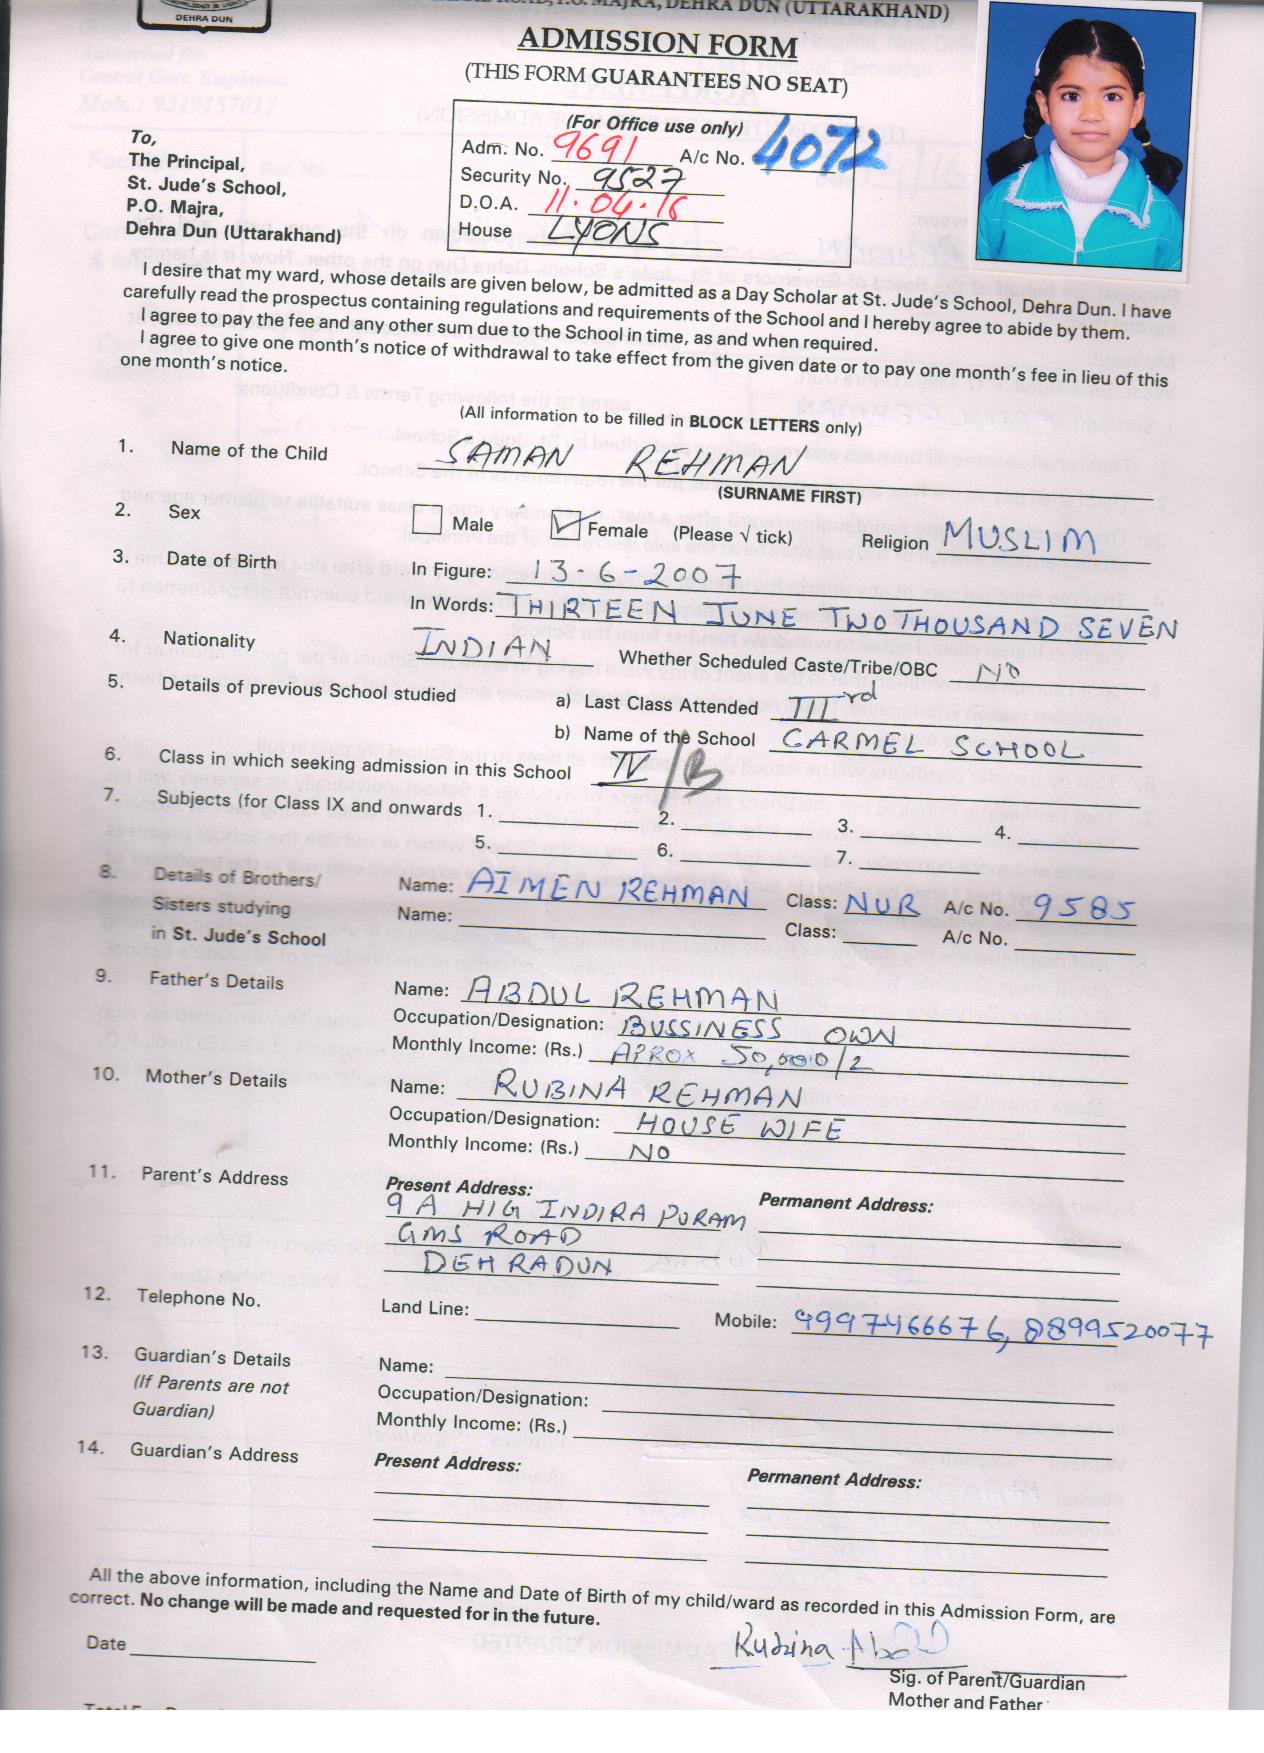 DEHRA DUN
ROAD, P.O. MAJRA, DEHRA DUN (UTTARAKHAND)
ADMISSION FORM
(THIS FORM GUARANTEES NO SEAT)
(For Office use only)
Adm. No. 9691 A/c No. 4072
Security No. 9527
D.O.A. 11.04.16
House LYONS
To,
The Principal,
St. Jude's School,
P.O. Majra,
Dehra Dun (Uttarakhand)
I desire that my ward, whose details are given below, be admitted as a Day Scholar at St. Jude's School, Dehra Dun. I have
carefully read the prospectus containing regulations and requirements of the School and I hereby agree to abide by them.
I agree to pay the fee and any other sum due to the School in time, as and when required.
I agree to give one month's notice of withdrawal to take effect from the given date or to pay one month's fee in lieu of this
one month's notice.
(All information to be filled in BLOCK LETTERS only)
1. Name of the Child SAMAN REHMAN
(SURNAME FIRST)
2. Sex Male Female (Please √ tick) Religion MUSLIM
3. Date of Birth In Figure: 13-6-2007
In Words: THIRTEEN JUNE TWO THOUSAND SEVEN
4. Nationality INDIAN Whether Scheduled Caste/Tribe/OBC NO
5. Details of previous School studied a) Last Class Attended IIIrd
b) Name of the School CARMEL SCHOOL
6. Class in which seeking admission in this School IV/B
7. Subjects (for Class IX and onwards 1. 2. 3. 4.
5. 6. 7.
8. Details of Brothers/ Name: AIMEN REHMAN Class: NUR A/c No. 9585
Sisters studying Name: Class: A/c No.
in St. Jude's School
9. Father's Details Name: ABDUL REHMAN
Occupation/Designation: BUSSINESS OWN
Monthly Income: (Rs.) APROX 50,000/2
10. Mother's Details Name: RUBINA REHMAN
Occupation/Designation: HOUSE WIFE
Monthly Income: (Rs.) NO
11. Parent's Address Present Address: Permanent Address:
9 A HIG INDIRA PURAM
GMS ROAD
DEHRADUN
12. Telephone No. Land Line: Mobile: 9997466676, 8899520077
13. Guardian's Details Name:
(If Parents are not Occupation/Designation:
Guardian) Monthly Income: (Rs.)
14. Guardian's Address Present Address: Permanent Address:
All the above information, including the Name and Date of Birth of my child/ward as recorded in this Admission Form, are
correct. No change will be made and requested for in the future.
Rubina
Date
Sig. of Parent/Guardian
Mother and Father